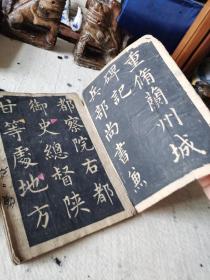 重脩蘭州城
碑記
兵部尚書兼
都察院右都
御史總督陝
甘等處地方